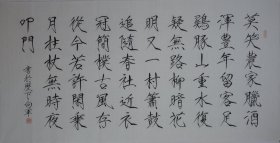 莫笑農家臘酒
渾豐年留客足
鷄豚山重水復
疑無路柳暗花
明又一村簫鼓
追隨春社近衣
冠簡樸古風存
從今若許閑乘
月拄杖無時夜
叩門